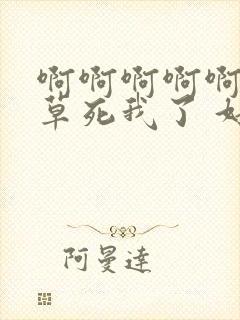 啊啊啊啊啊
草死我了
阿曼達